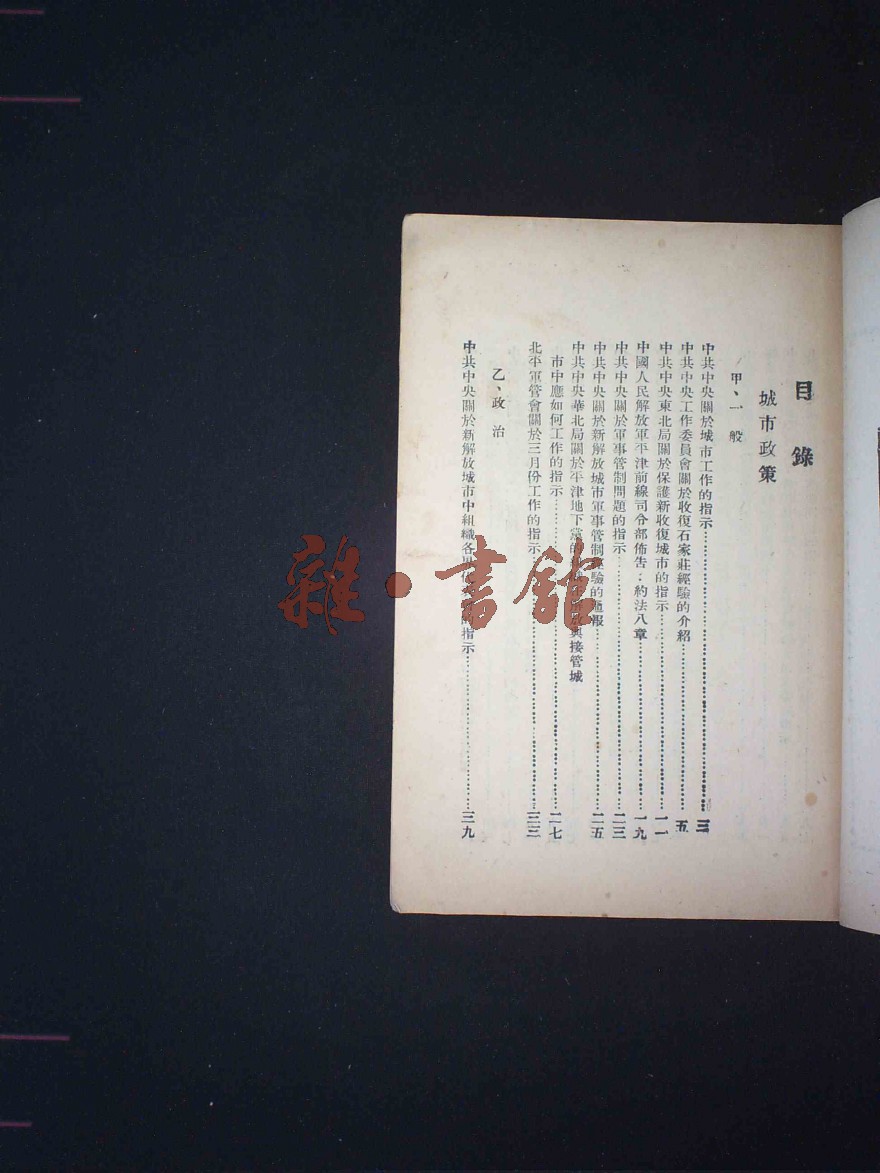 目錄
城市政策
甲、一般
中共中央關於城市工作的指示……三
中共中央工作委員會關於收復石家莊經驗的介紹……五
中共中央東北局關於保護新收復城市的指示……一一
中國人民解放軍平津前線司令部佈告：約法八章……一九
中共中央關於軍事管制問題的指示……二三
中共中央關於新解放城市軍事管制經驗的通報……二五
中共中央華北局關於平津地下黨的 與接管城
市中應如何工作的指示……二七
北平軍管會關於三月份工作的指示……三三
乙、政治
中共中央關於新解放城市中組織各界 的指示……三九
雜·書館